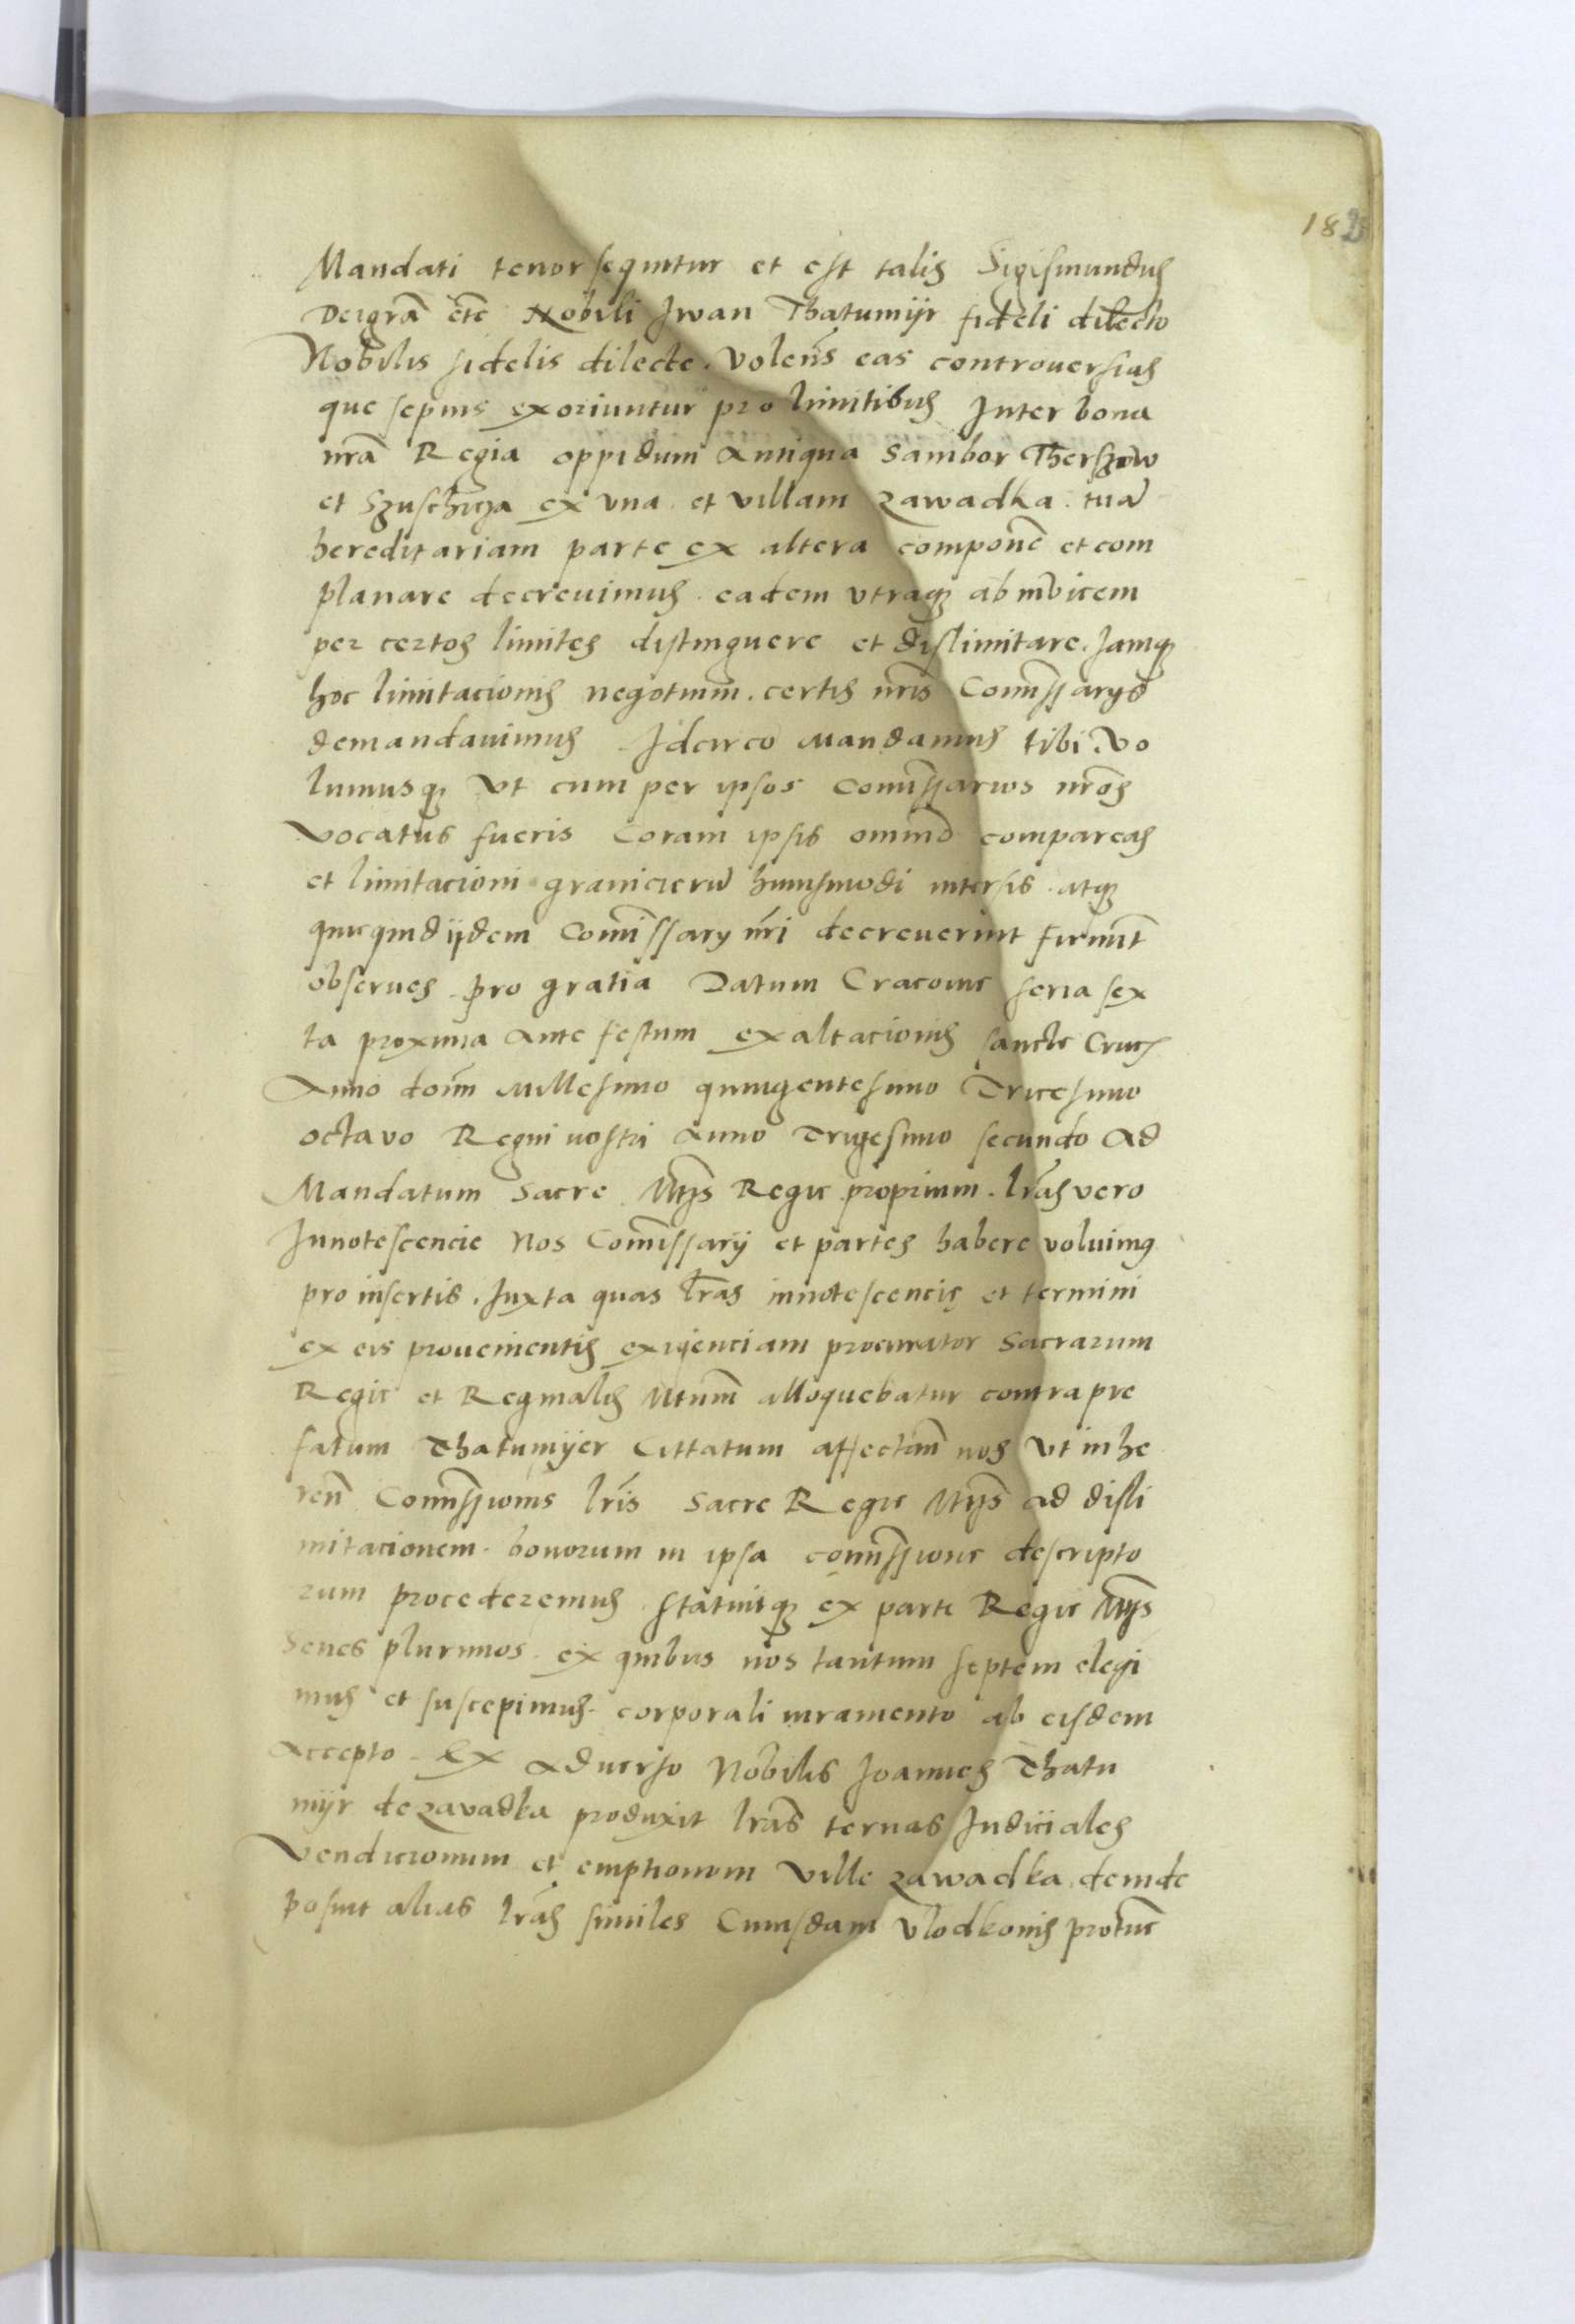 182
Mandati tenor sequitur et est talis Sigismundus
Dei grã etc̃ Nobili Iwan Thatumijr fideli dilecto
Nobilis fidelis dilecte. Volen̄s eas controuersias
que sepius exoriuntur pro limitibus Inter bona
nrã Regia oppidum Antiqua Sambor Therszow
et Szuschicza ex vna et villam zawadka tuã
hereditariam parte ex altera componẽ et com
planare decreuimus eadem vtraqȝ ab invicem
per certos limites distinguere et dislimitare. Iamqȝ
hoc limitacionis negotium. certis nr̃is Com̃issarys
demandauimus Idcirco Mandamus tibi Vo
lumusqȝ Vt cum per ipsos Com̃issarios nr̃os
vocatus fueris Coram ipsis omninõ compareas
et limitacioni granicierũ huiusmodi intersis. atqȝ
quicquid ijdem Com̃issary nr̃i decreuerint firmit̃
obserues pro gratia Datum Cracouie feria sex
ta proxima Ante festum exaltacionis sancte Crucis
Anno doim̃ Millesimo quingentesimo Tricesimo
octavo Regni nostri Anno Trigesimo secundo Ad
Mandatum Sacre Mtis̃ Regie proprium. lr̃as vero
Innotescencie Nos Com̃issarij et partes habere voluimus
pro insertis. Iuxta quas lr̃as innotescencie et termini
ex eis prouenientis exigenciam procurator Sacrarum
Regie et Reginalis Mtum̃ alloquebatur contra pre
fatum Thatumijer Cittatum affectan̄ nos Vt inhe
ren̄ Com̃issionis lr̃is Sacre Regie Mtis̃ ad disli
mitacionem bonorum in ipsa com̃issione descripto
rum procederemus statuitqȝ ex parte Regie Mtis̃
Senes plurimos. ex quibus nos tantum septem elegi
mus et suscepimus corporali iuramento ab eisdem
accepto Ex aduerso Nobilis Joannes Thatu
mijr de zavadka produxit lr̃as ternas Iudiciales
Vendicionum et emptionum Ville zawadka deinde
posuit alias lr̃as similes Cuiusdam Vlodkonis protunc